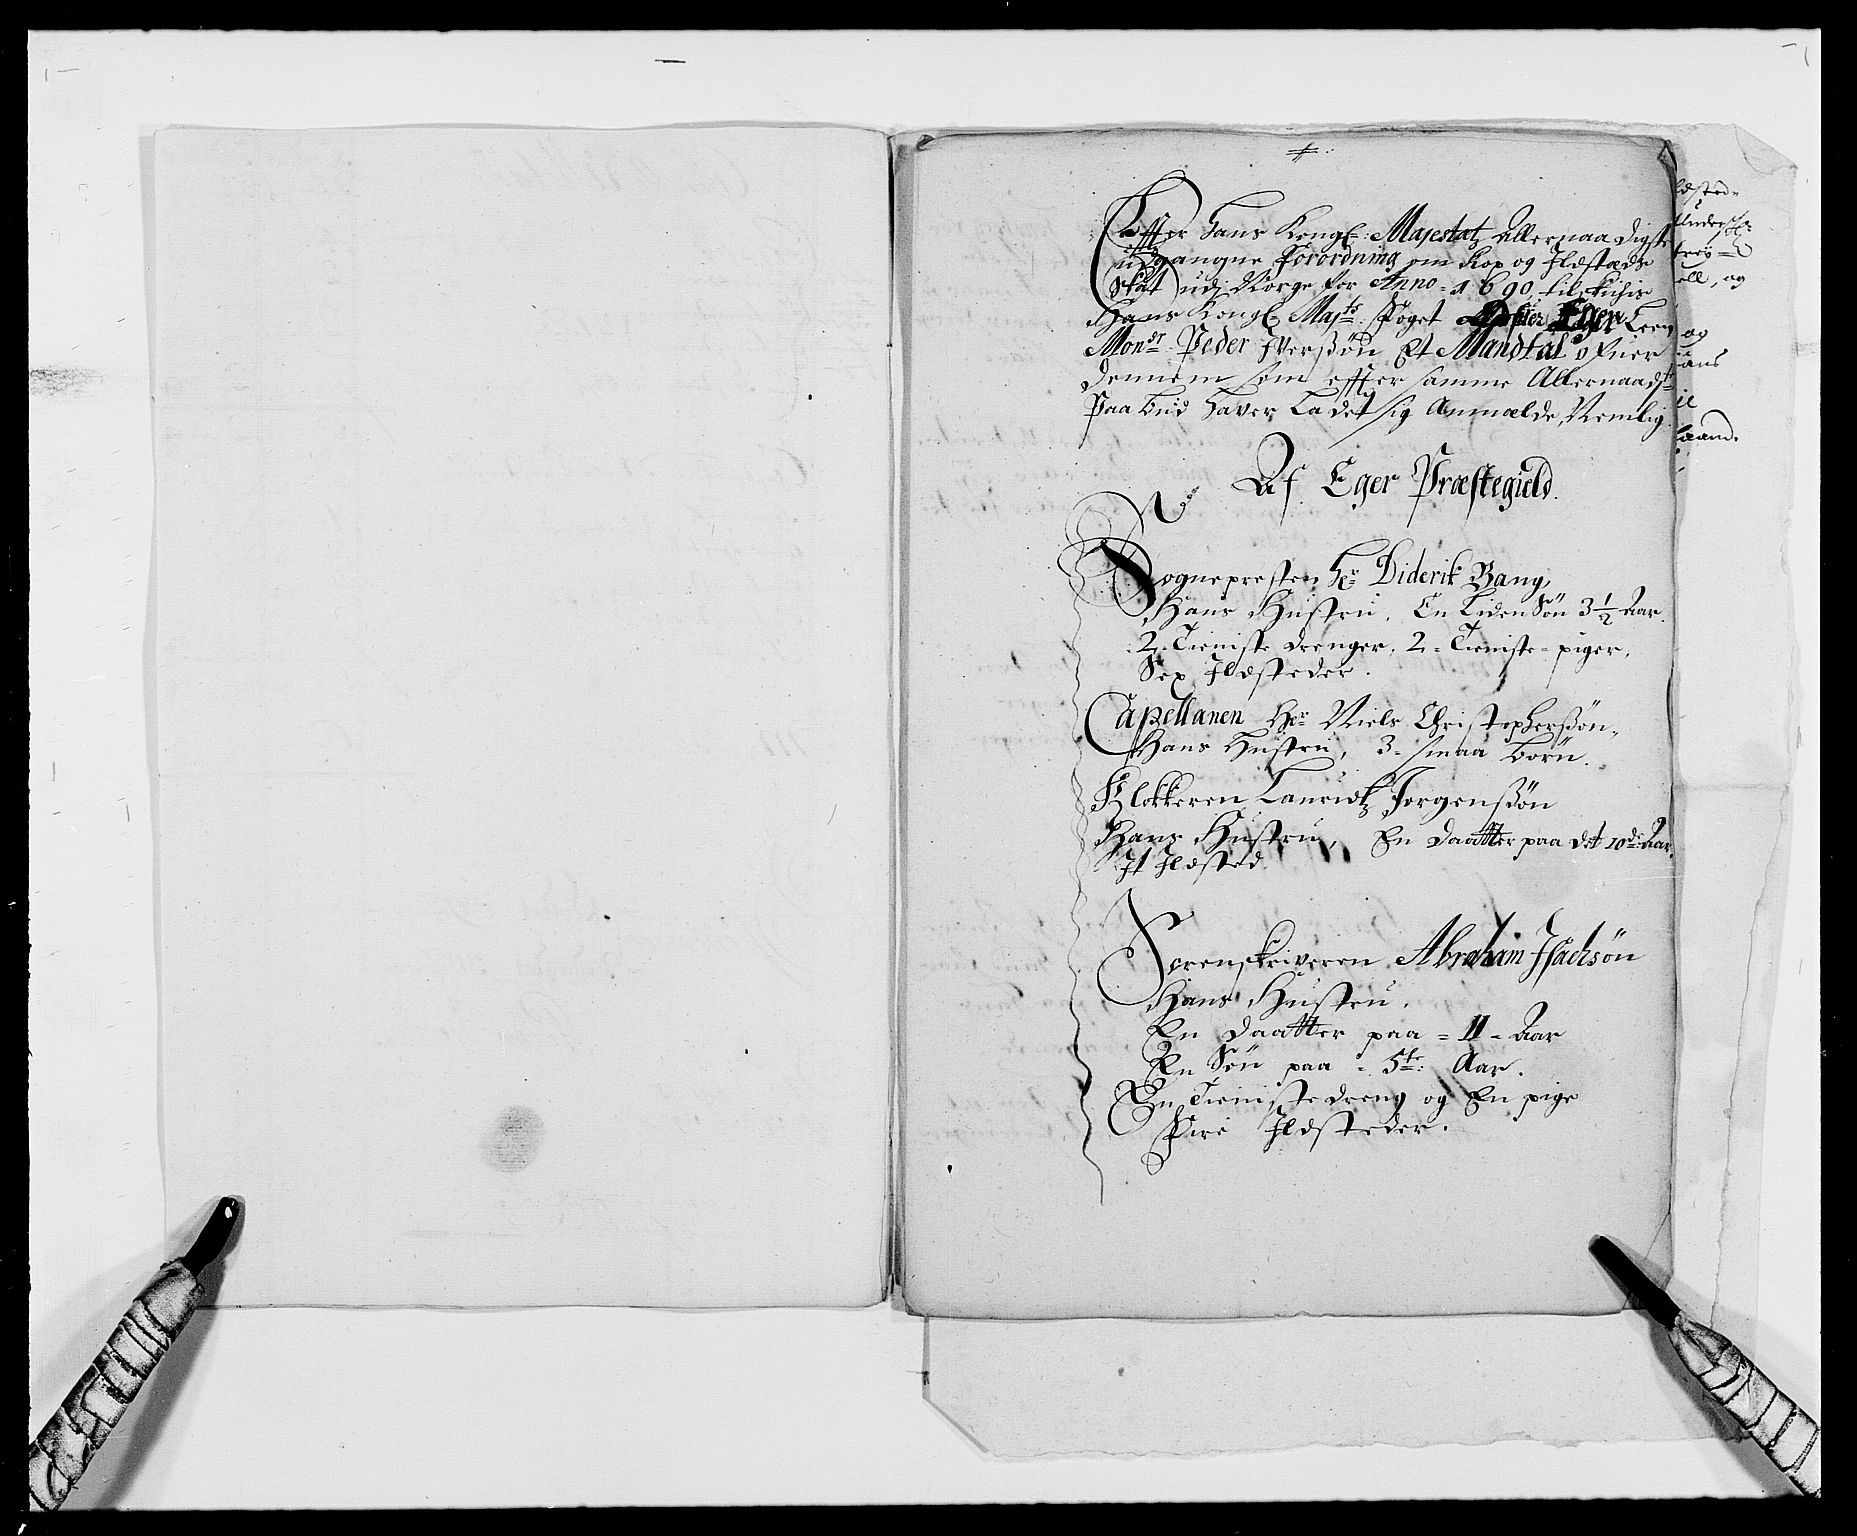 Effter Hans Kongl: Majestatz Allernaadigste
udgangne Forordning om Kop og Ildstæds
Skat udj Norge for Anno 1690, tilskichis
Hans Kongl Majts: Foget Eger Leen
Monsr Peder Iverssøn Et Mandtal ofver
dennem som effter samme Allernaadst
Paabud haver ladet sig Anmælde, Nemlig
Af Eger Præstegield.
Sognepresten Hr Diderik Bang,
Hans Hustru, En liden Søn 3 1/2 Aar.
2 Tieniste drenger, 2 = Tieniste = piger,
Sex Ildsteder.
Capellanen Hr Niels Christopherssøn,
Hans Hustru, 3 = smaa børn.
Klokkeren Lauridtz Jørgenssøn
Hans Hustru, En Daatter paa det 10de Aar.
It Ildsted.
Sorenskriveren Abraham Isachsøn
Hans Hustru.
En Daatter paa = 11 = Aar
En Søn paa = 5te: Aar.
En Tieniste dreng og En pige
Fire Ildsteder.
ell, og
og